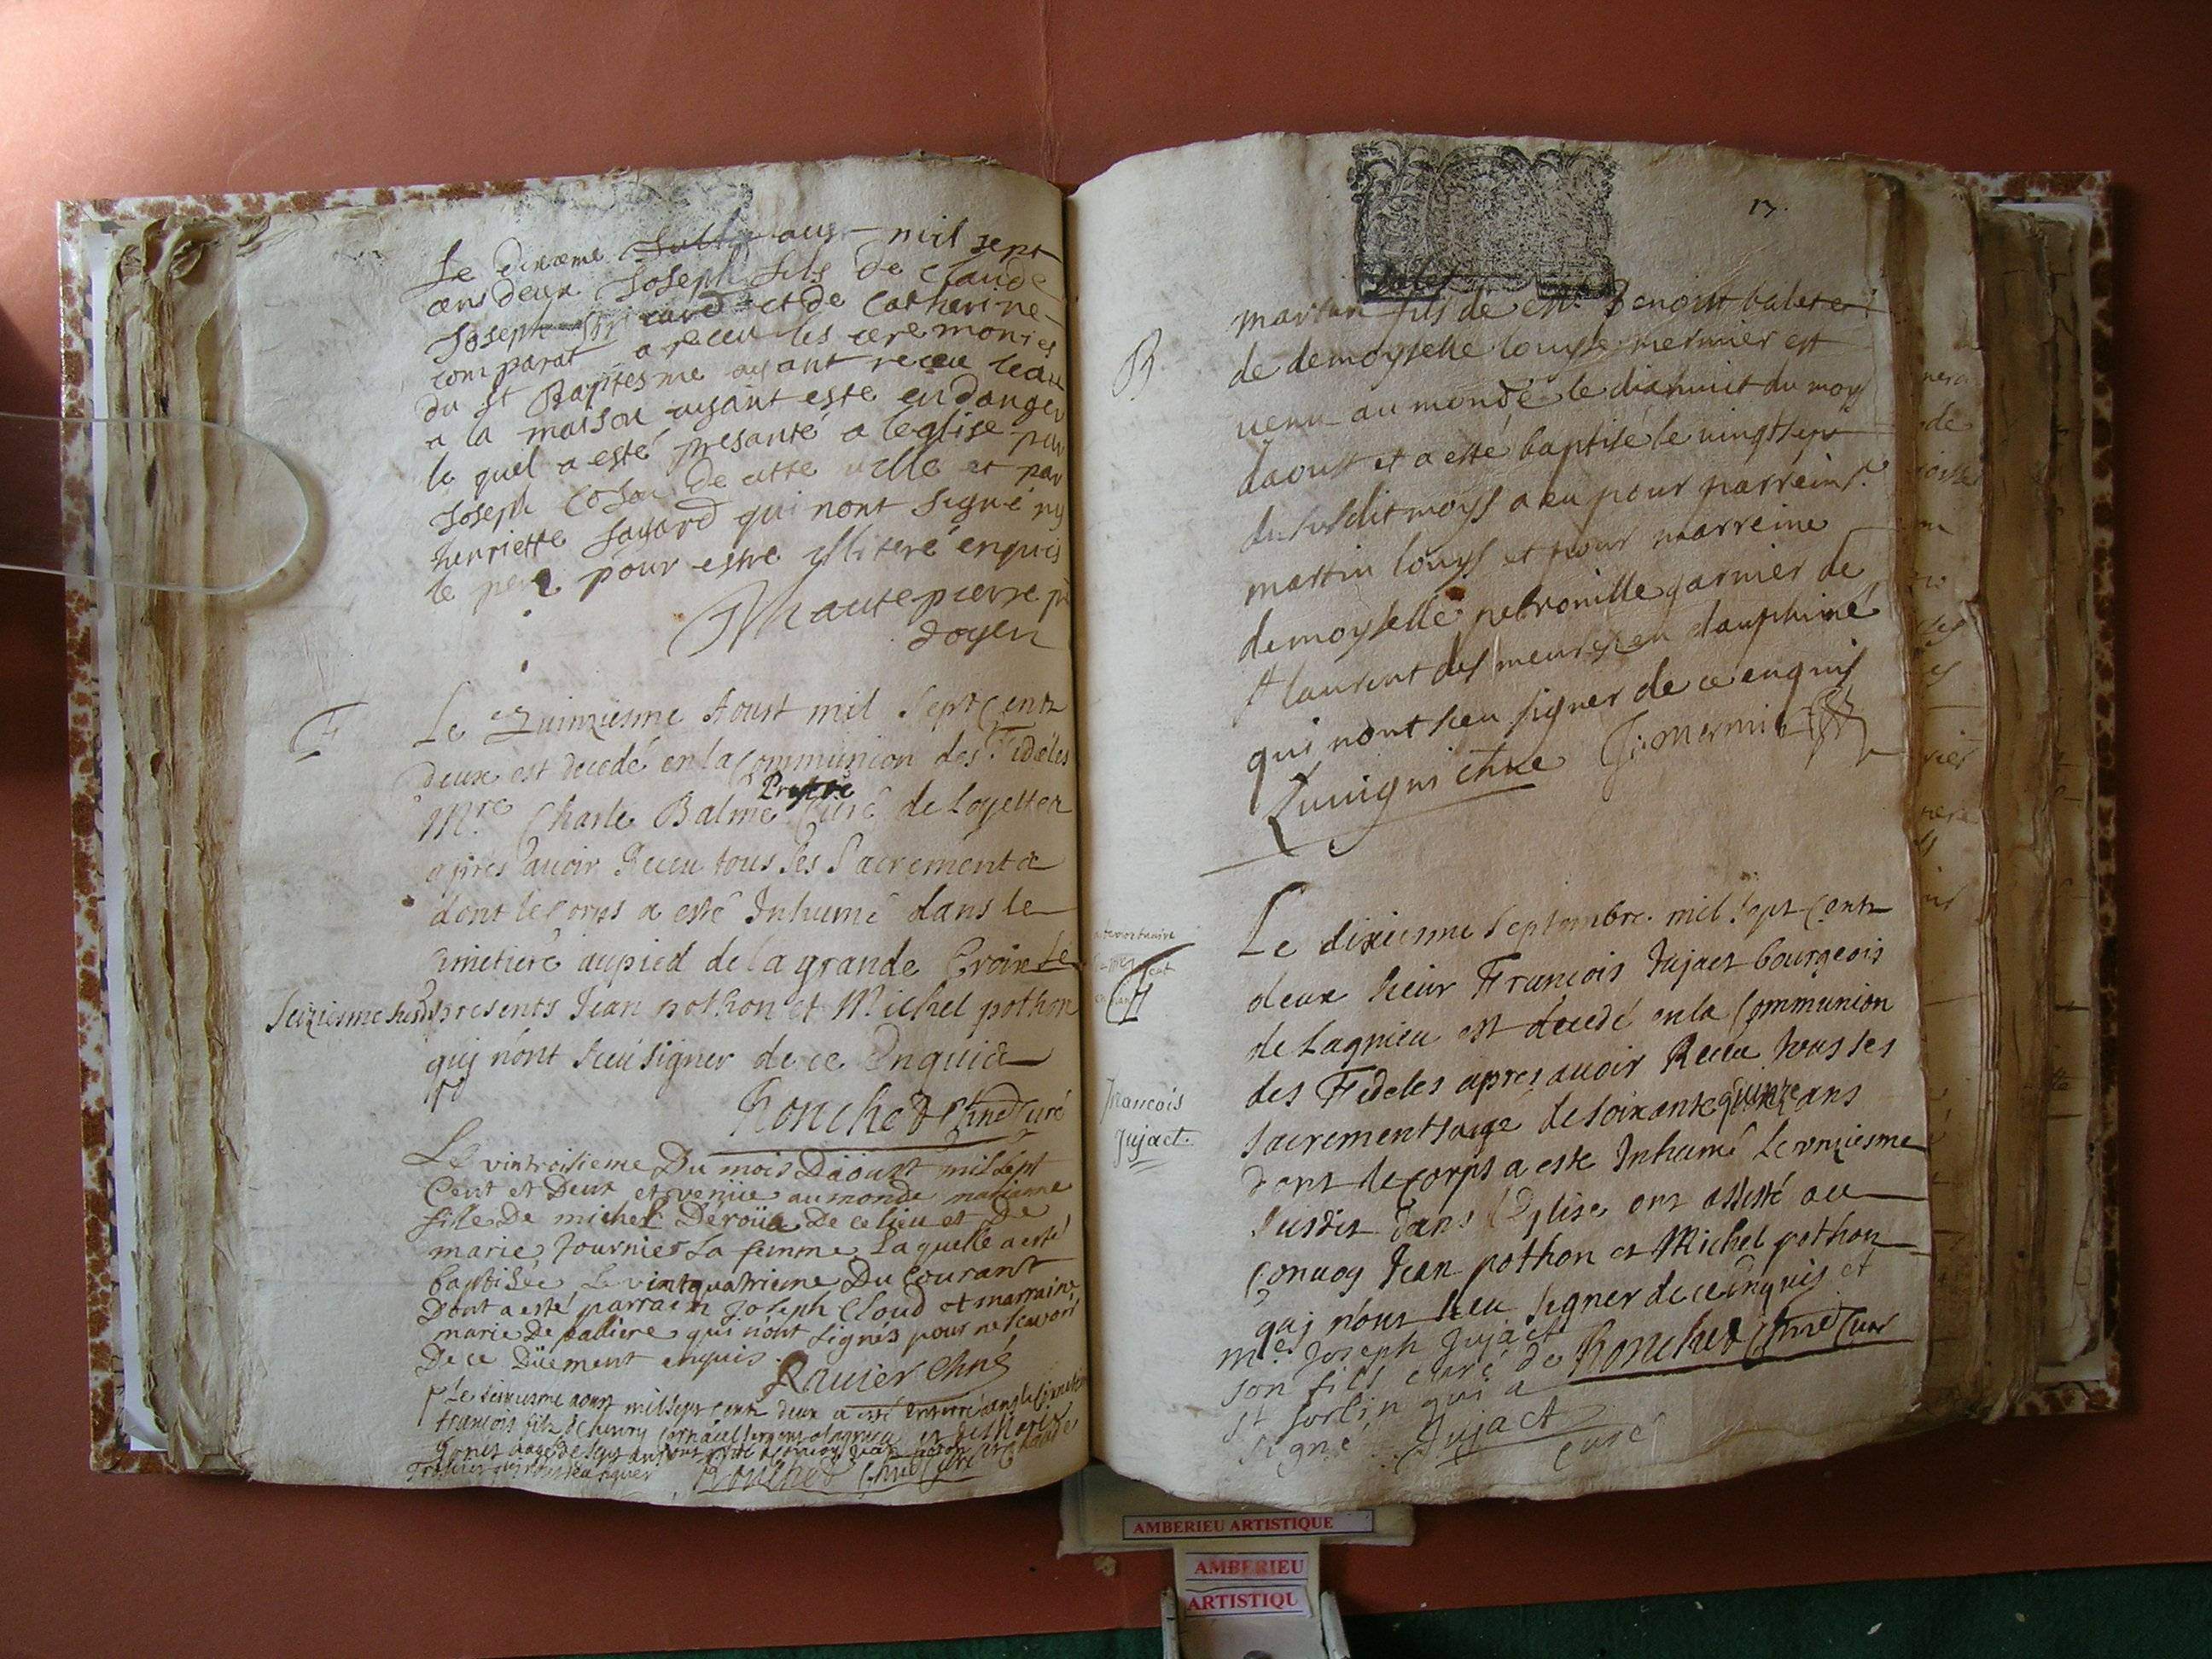 Le dixieme aust mil sept
cens deux Joseph fils de Claude
Joseph et de Catherine
comparat a receu les ceremonies
du St Baptesme ayant receu leau
a la maison ayant esté en danger
le quel a esté presanté a leglise par
Joseph Coson de cette ville et par
henriette Sauard qui nont signé ny
le pere pour estre illiteré enquis
Mautepierre
doyen
Le Quinziesme Aoust mil Sept Cents
deux est decedé en la Communion des Fideles
Mre Charle Balme Prestre Curé de Loyettes
apres auoir Receu tous les Sacrements
dont le Corps a esté Inhumé dans le
cimetiere au pied de la grande Croix Le
Seiziesme presents Jean pothon et Michel pothon
qui nont sceu signer de ce Enquis
Ronchet Curé
Le vintroisieme Du mois Daoust mil sept
Cent et Deux et veniie au monde marianne
fille De michel Déroüa De ce lieu et De
marie fournier sa femme Laquelle a esté
baptisée Le vintquatrieme Du courant
Dont a esté parrain Joseph Cloud et marraine
marie De palliere qui n'ont signés pour ne scavoir
De ce Düement enquis
Rauier Chne
Le aoust mil sept cents deux a esté enterré dans le
francois fils de henry sergent
aagé de sept ans
signer Ronchet Curé
17.
B.
martin fils de Benoist balet et
de demoyselle louyse mermier est
uenu au monde le dixhuit du moys
daoust et a esté baptisé le uingtsept
du susdit moys a eu pour parrein Sr.
martin louys et pour marreine
demoyselle petronille garnier de
st laurent des meures en dauphiné
qui nont sceu signer de ce enquis
Le dixiesme Septembre mil Sept Cents
deux Sieur Francois Jujact bourgeois
de Lagnieu est decedé en la Communion
des Fideles apres auoir Receu tous ses
sacrements agé de soixante quinze ans
dont le corps a este Inhumé Le onziesme
susdit dans l'Eglise ont assisté au
Conuoy Jean pothon et Michel pothon
qui n'ont sceu signer de ce Enquis et
mre Joseph Jujact
son fils curé de Ronchet Curé
st sorlin qui a
signé Jujact
curé
francois
jujact.
AMBERIEU ARTISTIQUE
AMBERIEU
ARTISTIQU